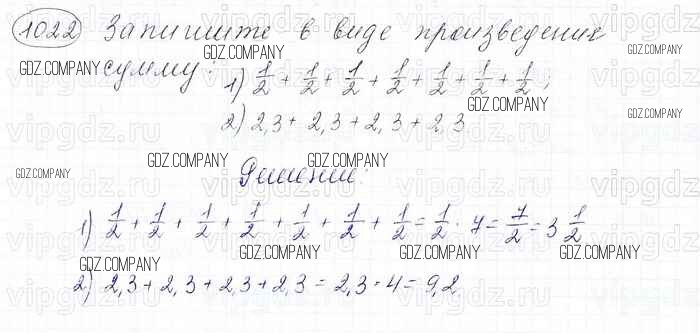 1022 Запишите в виде произведения
сумму:
1) 1/2 + 1/2 + 1/2 + 1/2 + 1/2 + 1/2 + 1/2;
2) 2,3 + 2,3 + 2,3 + 2,3
Решение:
1) 1/2 + 1/2 + 1/2 + 1/2 + 1/2 + 1/2 + 1/2 = 1/2 · 7 = 7/2 = 3 1/2
2) 2,3 + 2,3 + 2,3 + 2,3 = 2,3 · 4 = 9,2
GDZ.COMPANY
GDZ.COMPANY
GDZ.COMPANY
GDZ.COMPANY
GDZ.COMPANY
GDZ.COMPANY
GDZ.COMPANY
GDZ.COMPANY
GDZ.COMPANY
GDZ.COMPANY
GDZ.COMPANY
vipgdz.ru